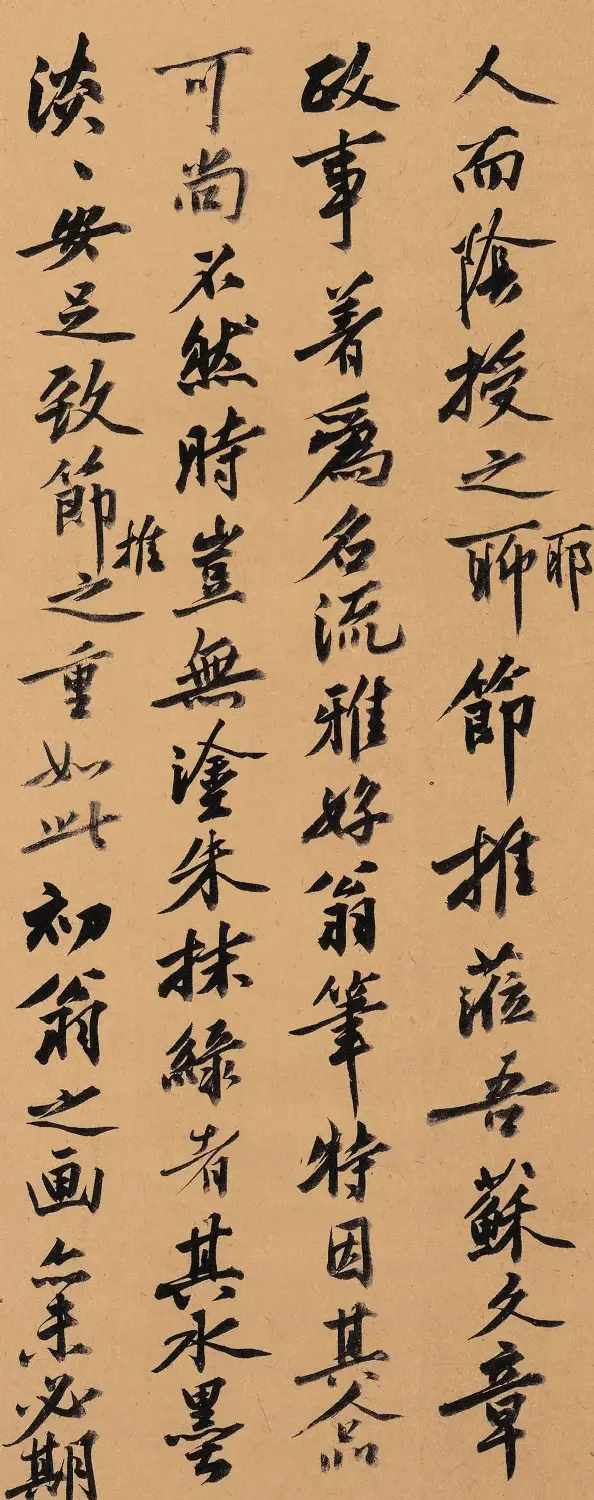 人而陰授之聊耶節推蒞吾蘇文章
政事著為名流雅好翁筆特因其人品
可尚不然時豈無塗朱抹綠者其水墨
淡〻安足致節推之重如此初翁之画亦未必期